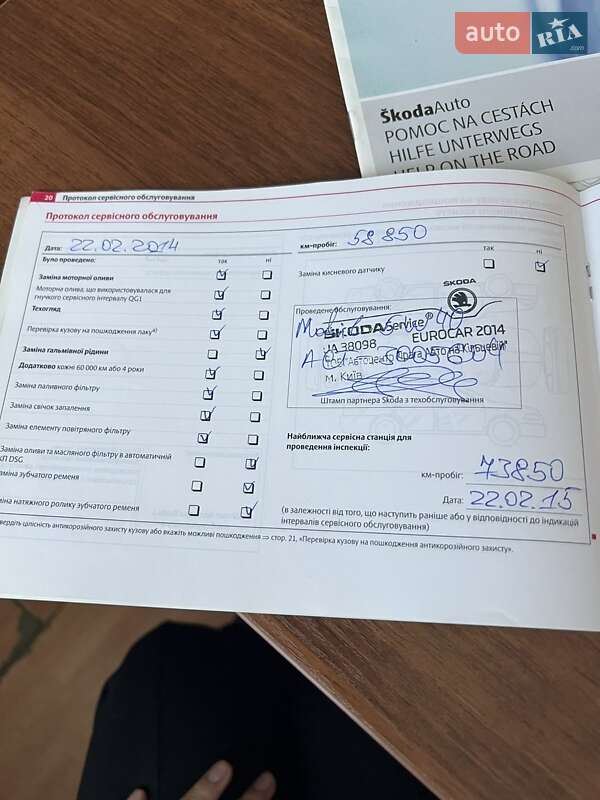 auto RIA.com
ŠkodaAuto
POMOC NA CESTÁCH
HILFE UNTERWEGS
HELP ON THE ROAD
20 Протокол сервісного обслуговування
Протокол сервісного обслуговування
Дата: 22.02.2014
км-пробіг: 58 850
Було проведено: так ні
так ні
Заміна моторної оливи
Заміна кисневого датчику
Моторна олива, що використовувалася для
гнучкого сервісного інтервалу QG1
Техогляд
Перевірка кузову на пошкодження лаку
Заміна гальмівної рідини
Додатково кожні 60 000 км або 4 роки
Заміна паливного фільтру
Заміна свічок запалення
Заміна елементу повітряного фільтру
Заміна оливи та масляного фільтру в автоматичній
КП DSG
аміна зубчатого ременя
міна натяжного ролику зубчатого ременя
SKODA
Проведене обслуговування:
ŠKODA Service®
EUROCAR 2014
UA 38098
м. Київ
Штамп партнера Skoda з техобслуговування
Найближча сервісна станція для
проведення інспекції:
км-пробіг: 73850
Дата: 22.02.15
(в залежності від того, що наступить раніше або у відповідності до індикації
інтервалів сервісного обслуговування)
твердіть цілісність антикорозійного захисту кузову або вкажіть можливі пошкодження ⇒ стор. 21, «Перевірка кузову на пошкодження антикорозійного захисту».